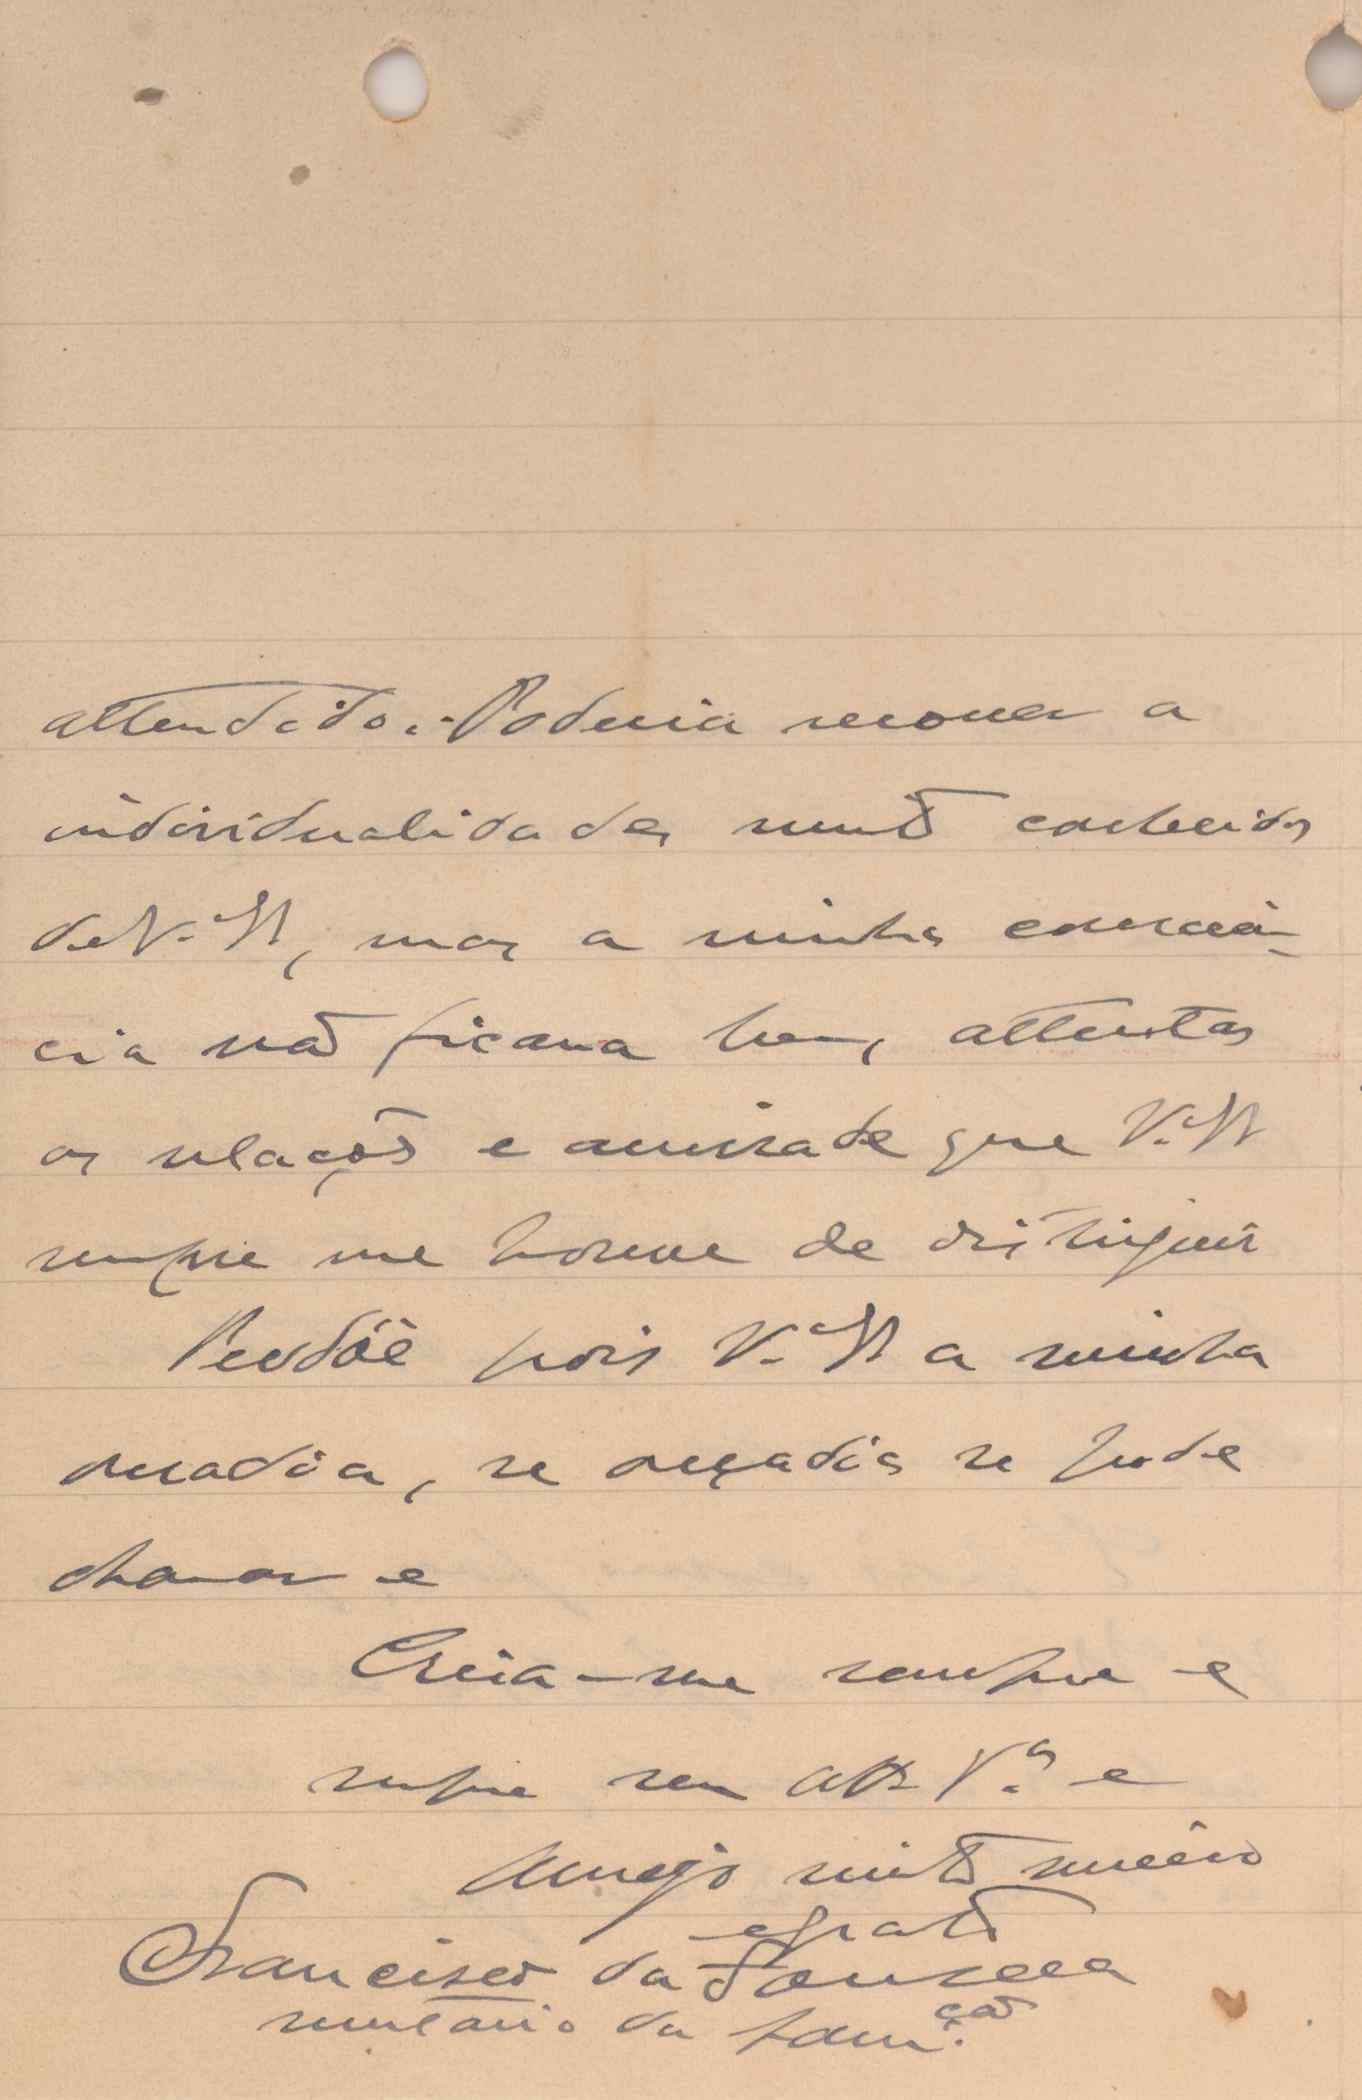 attendido. Poderia recorrer a
individualidades muito conhecidas
de V. Ex.ª, mas a minha conscien-
cia não ficaria bem, attentas
as relações e amisade que V. Ex.ª
sempre me houve de distinguir
Perdôe pois V. Ex.ª a minha
ousadia, se ousadia se pode
chamar e
Creia-me sempre e
sempre seu att.º V.ºʳ e
Amigo muito sincero
e grato
Francisco da Fonseca
secretario da Adm.ção